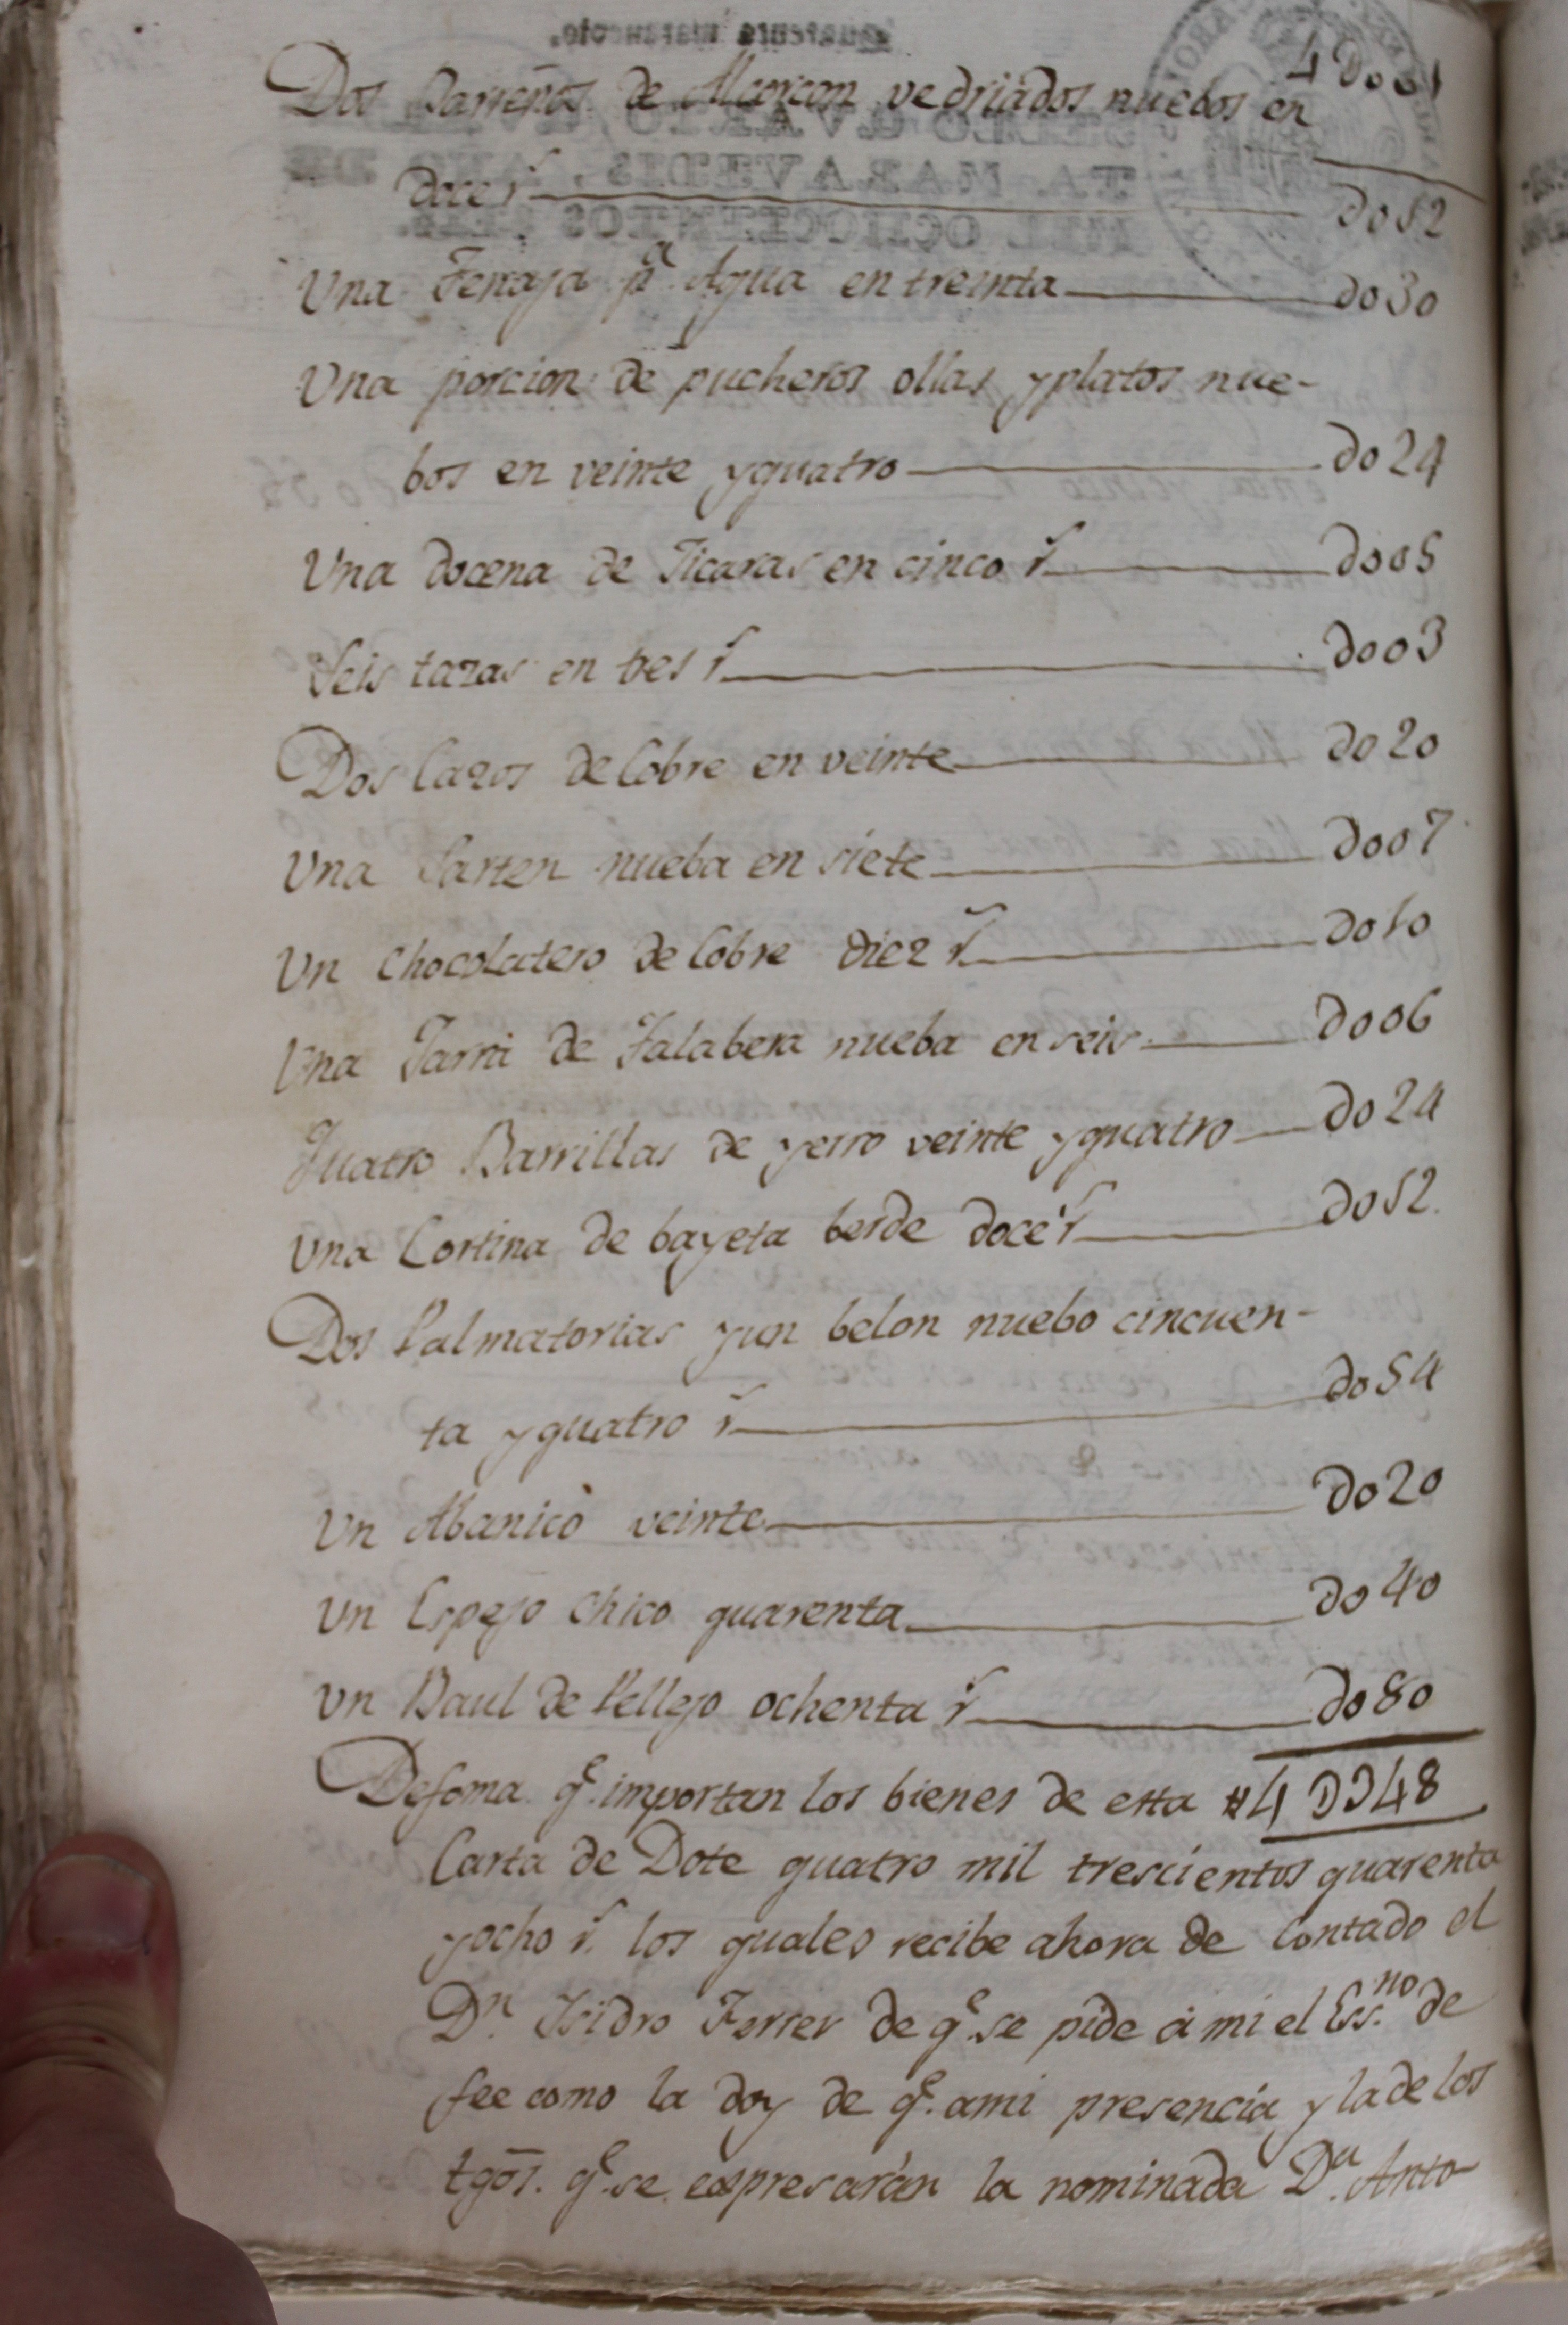 4D001
Dos Barreños de Alcorcon vedriados nuebos en
doce r.s D012
Una Tenaja p.a Agua en treinta D030
Una porcion de pucheros ollas y platos nue-
bos en veinte y quatro D024
Una docena de Jicaras en cinco r.s D005
Seis tazas en tres r.s D003
Dos Cazos de Cobre en veinte D020
Una Sarten nueba en siete D007
Un Chocolatero de Cobre diez r.s D010
Una Jarra de Talabera nueba en seis D006
Quatro Barrillas de yerro veinte y quatro D024
Una Cortina de bayeta berde doce r.s D012
Dos Palmatorias y un belon nuebo cincuen-
ta y quatro r.s D054
Un Abanico veinte D020
Un Espejo chico quarenta D040
Un Baul de Pellejo ochenta r.s D080
De soma q.e importan los bienes de esta 4DD348
Carta de Dote quatro mil trescientos quarenta
y ocho r.s los quales recibe ahora de Contado el
D.n Isidro Ferrer de q.e se pide á mi el Ess.no de
fee como la doy de q.e ami presencia y la de los
tgos. q.e se expresarán la nominada D.a Anto